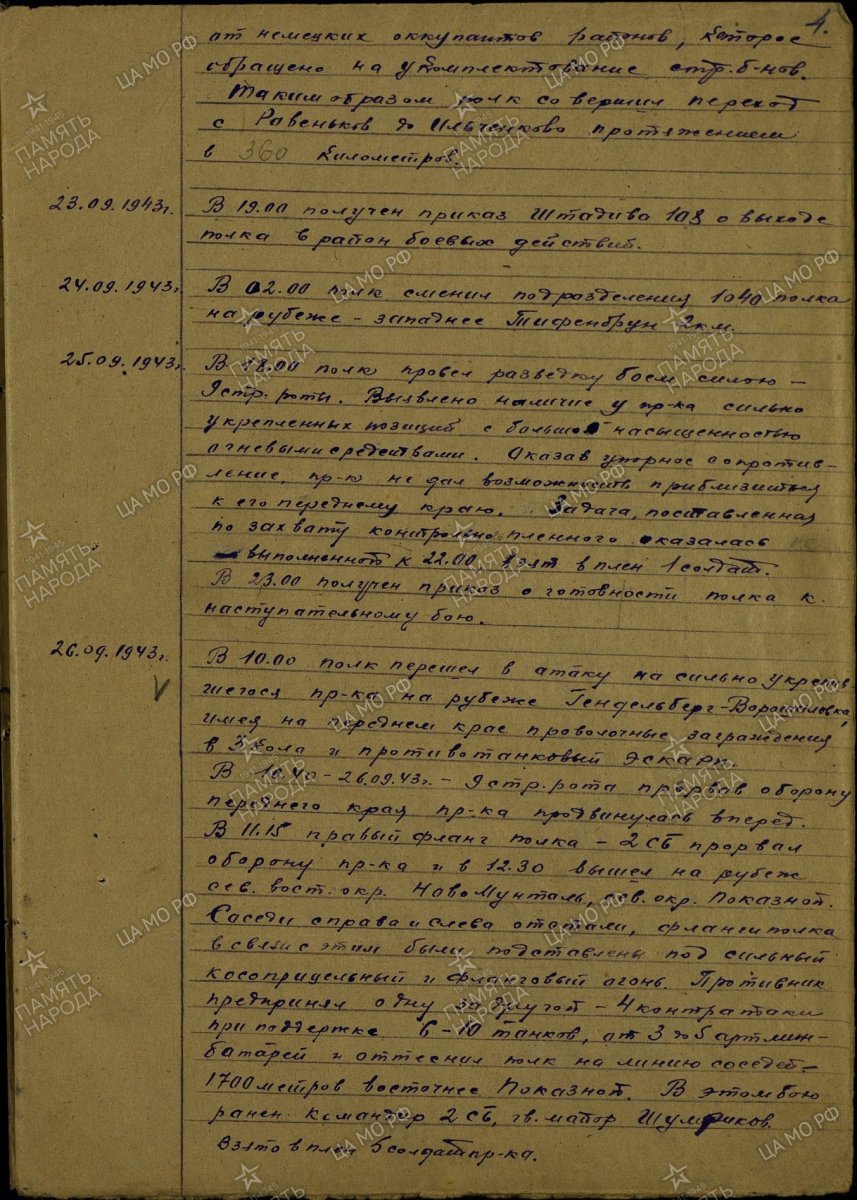 4.
от немецких оккупантов районов, которое
обращено на укомплектование стр. б-нов.
Таким образом полк совершил переход
с Равеньков до Ильченково протяжением
в 360 километров.
23.09.1943г. В 19.00 получен приказ Штадива 108 о выходе
полка в район боевых действий.
24.09.1943г. В 02.00 полк сменил подразделения 1040 полка
на рубеже - западнее Тифенбрун 2 км.
25.09.1943г. В 18.00 полк провел разведку боем силою -
9 стр. роты. Выявлено наличие у пр-ка сильно
укрепленных позиций с большой насыщенностью
огневыми средствами. Оказав упорное сопротив-
ление, пр-к не дал возможность приблизиться
к его переднему краю. Задача, поставленная
по захвату контрольно пленного оказалась
выполненной к 22.00 - взят в плен 1 солдат.
В 23.00 получен приказ о готовности полка к
наступательному бою.
26.09.1943г. В 10.00 полк перешел в атаку на сильно укрепив
шегося пр-ка на рубеже Гендельберг-Ворошиловка,
имея на переднем крае проволочные заграждения
в 3 кола и противотанковый эскарп.
В 10.40 - 26.09.43г. - 9 стр. рота прорвав оборону
переднего края пр-ка продвинулась вперед.
В 11.15 правый фланг полка - 2 СБ прорвал
оборону пр-ка и в 12.30 вышел на рубеж
сев. вост. окр. Ново Мунталь, сев. окр. Показной.
Соседи справа и слева отстали, фланги полка
в связи с этим были подставлены под сильный
косоприцельный и фланговый огонь. Противник
предпринял одну за другой - 4 контратаки
при поддержке 8-10 танков, от 3 до 5 арт. мин-
батарей и оттеснил полк на линию соседей -
1700 метров восточнее Показной. В этом бою
ранен командир 2 СБ, гв. майор Шумриков.
Взято в плен 5 солдат пр-ка.